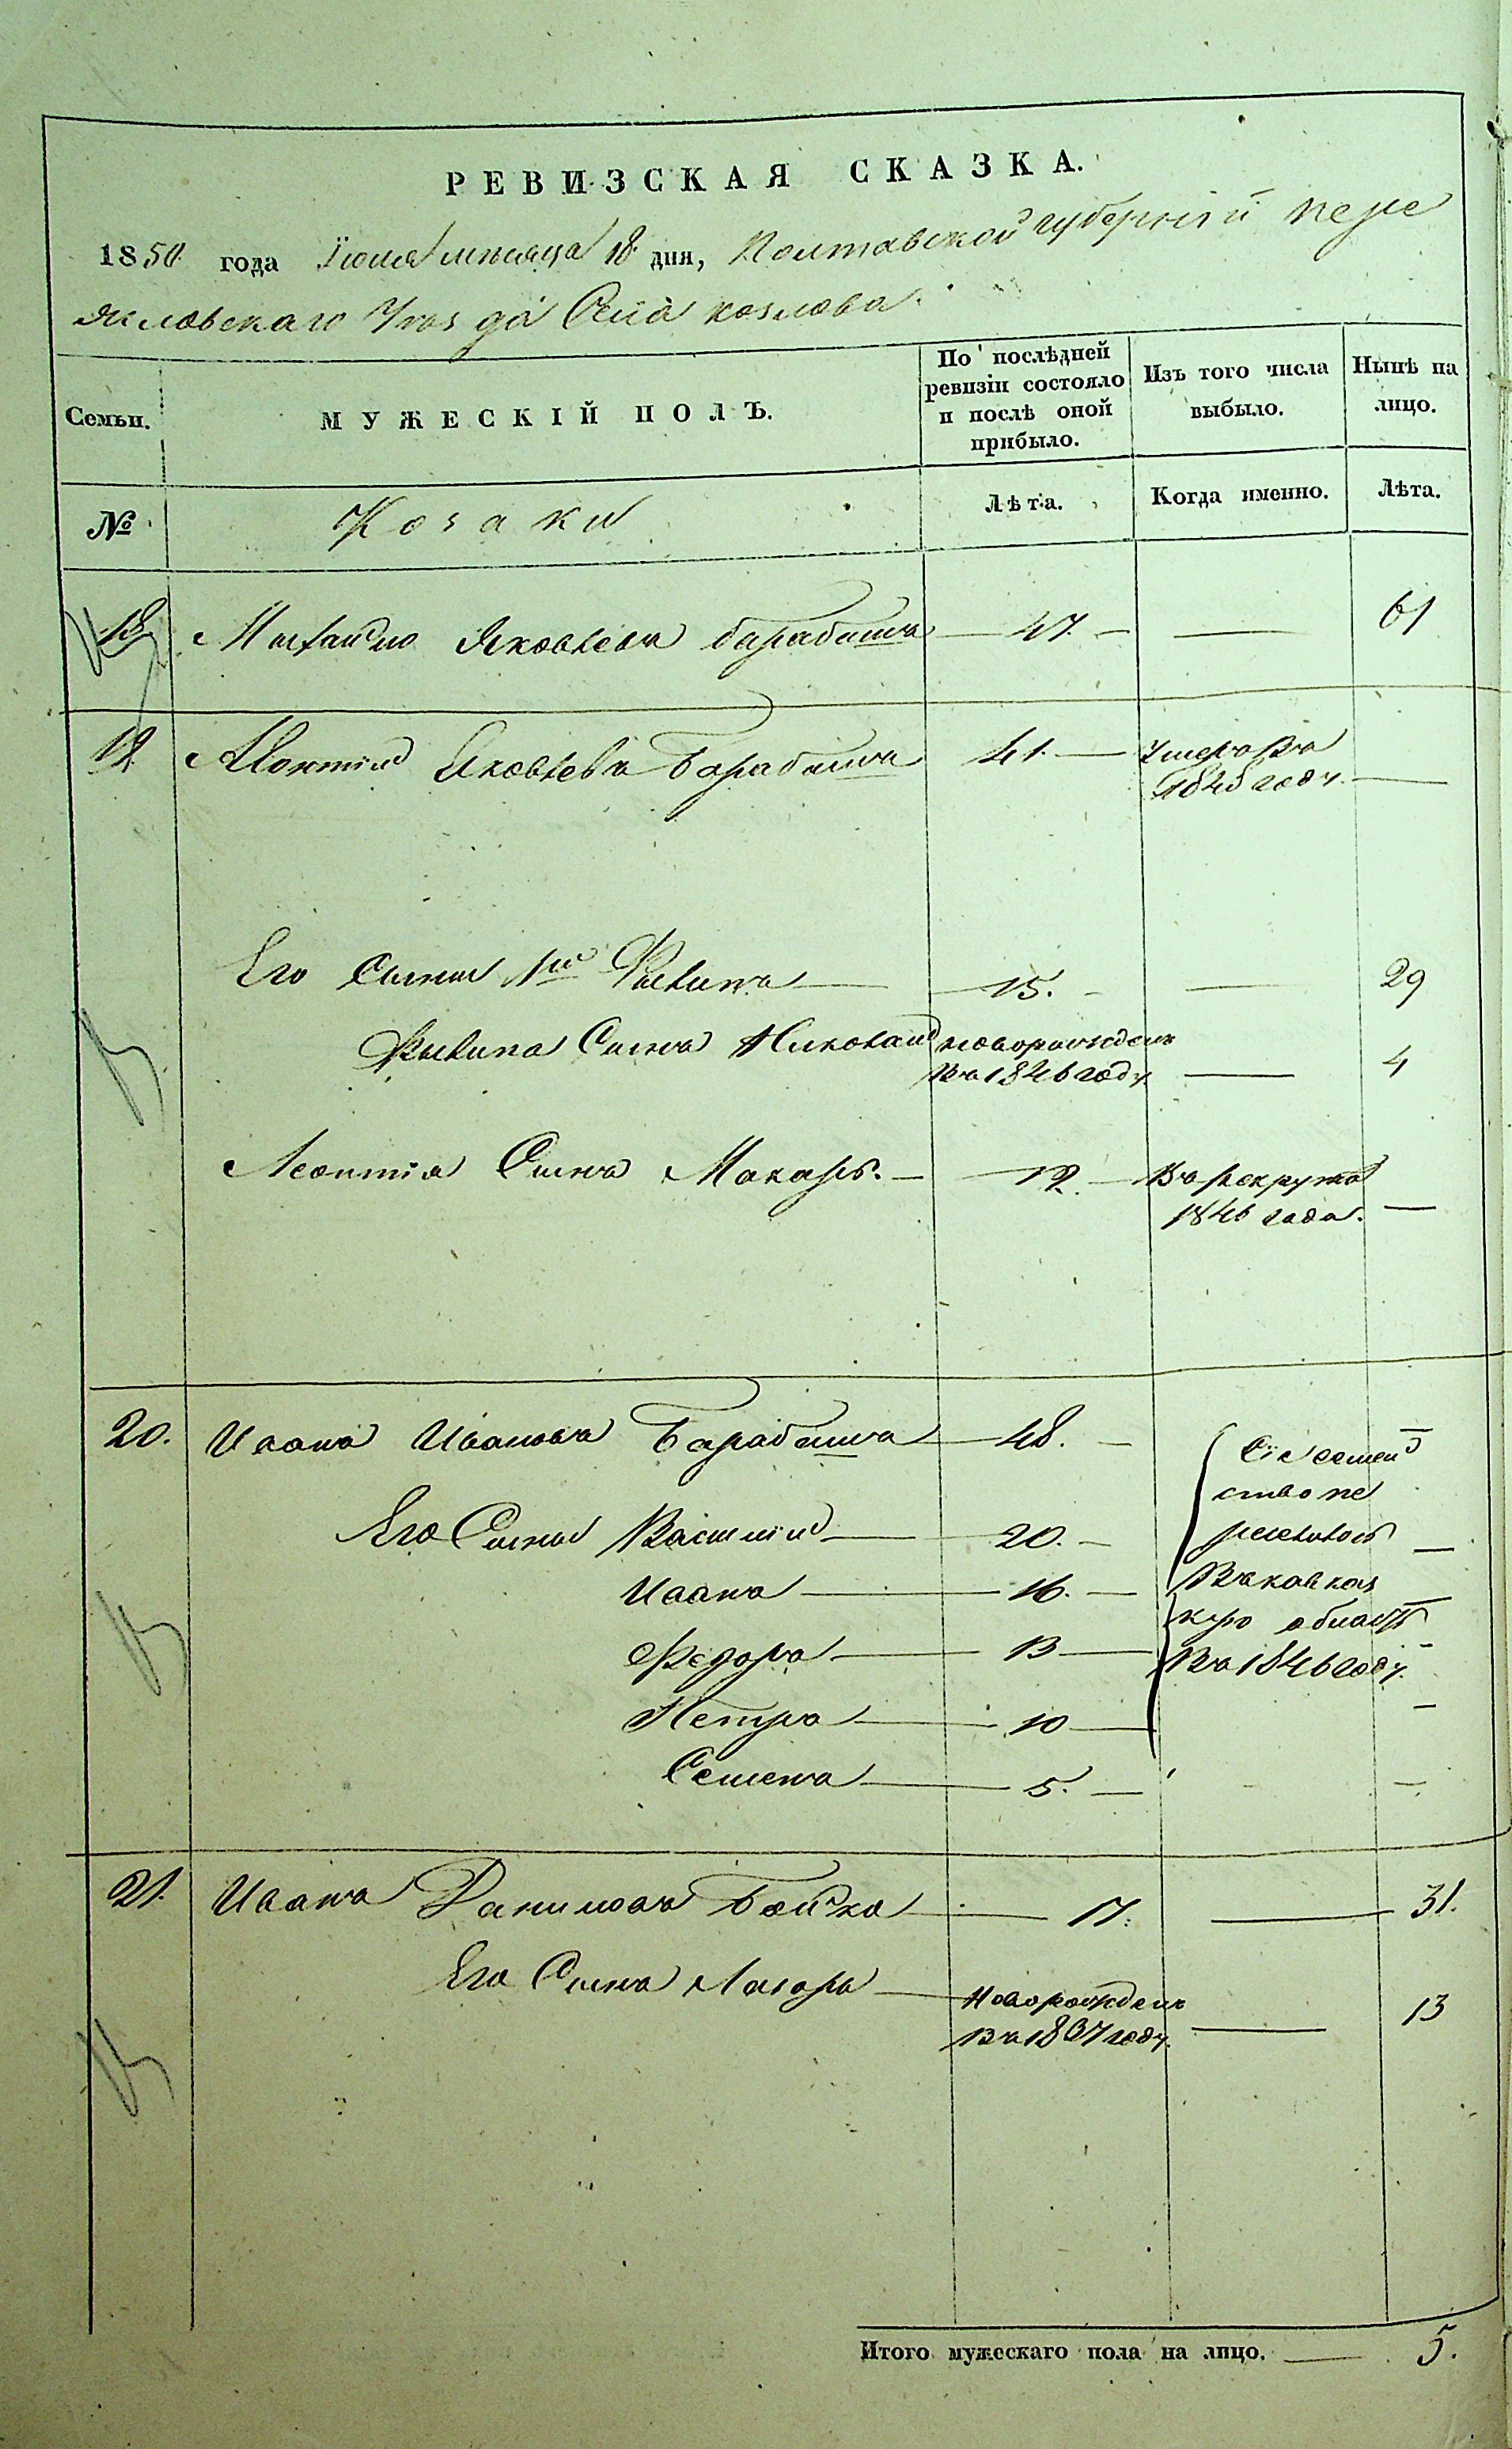 РЕВИЗСКАЯ СКАЗКА.
1850 года Іюля мѣсяца 18 дня, Полтавской губерніи пере
яславскаго Уезда Села козлова
Семьи.
МУЖЕСКІЙ ПОЛЪ.
По послѣдней ревизіи состояло и послѣ оной прибыло.
Изъ того числа выбыло.
Нынѣ на лицо.
№
Козаки
Лѣта.
Когда именно.
Лѣта.
18 Михайло Яковлевъ барабашъ — 47. — — 61
19 Леонтій Яковлевъ Барабашъ 41. — Умеръ Въ
году. —
Его Сыны 1й Филипъ — 15. — — 29
Филипа Сынъ Николай новорожденъ
Въ 1846 году — 4
Леонтія Сынъ Макаръ. — 12. — Въ рекруты
1846 года. —
20. Иванъ Ивановъ Барабашъ — 48. — Сіе семей
ство пе
Его Сыны Василій — 20. — реселилось —
Иванъ — 16. — Въ кавказ
кую область —
Федоръ — 13 — Въ 1846 году. —
Петръ — 10 — —
Семенъ — 5. — —
21. Иванъ Даниловъ Бойко — 17. — 31.
Его Сынъ Лазарь — Новорожденъ
Въ 1837 году. — 13
Итого мужескаго пола на лицо. — 5.